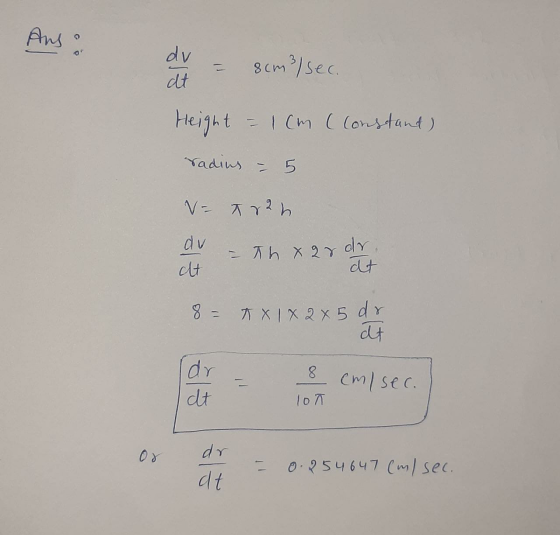 Ans :
dv/dt = 8cm³/sec.
Height = 1 cm (constant)
radius = 5
V = πr²h
dv/dt = πh × 2r dr/dt.
8 = π × 1 × 2 × 5 dr/dt
dr/dt = 8/10π cm/sec.
or dr/dt = 0.254647 cm/sec.